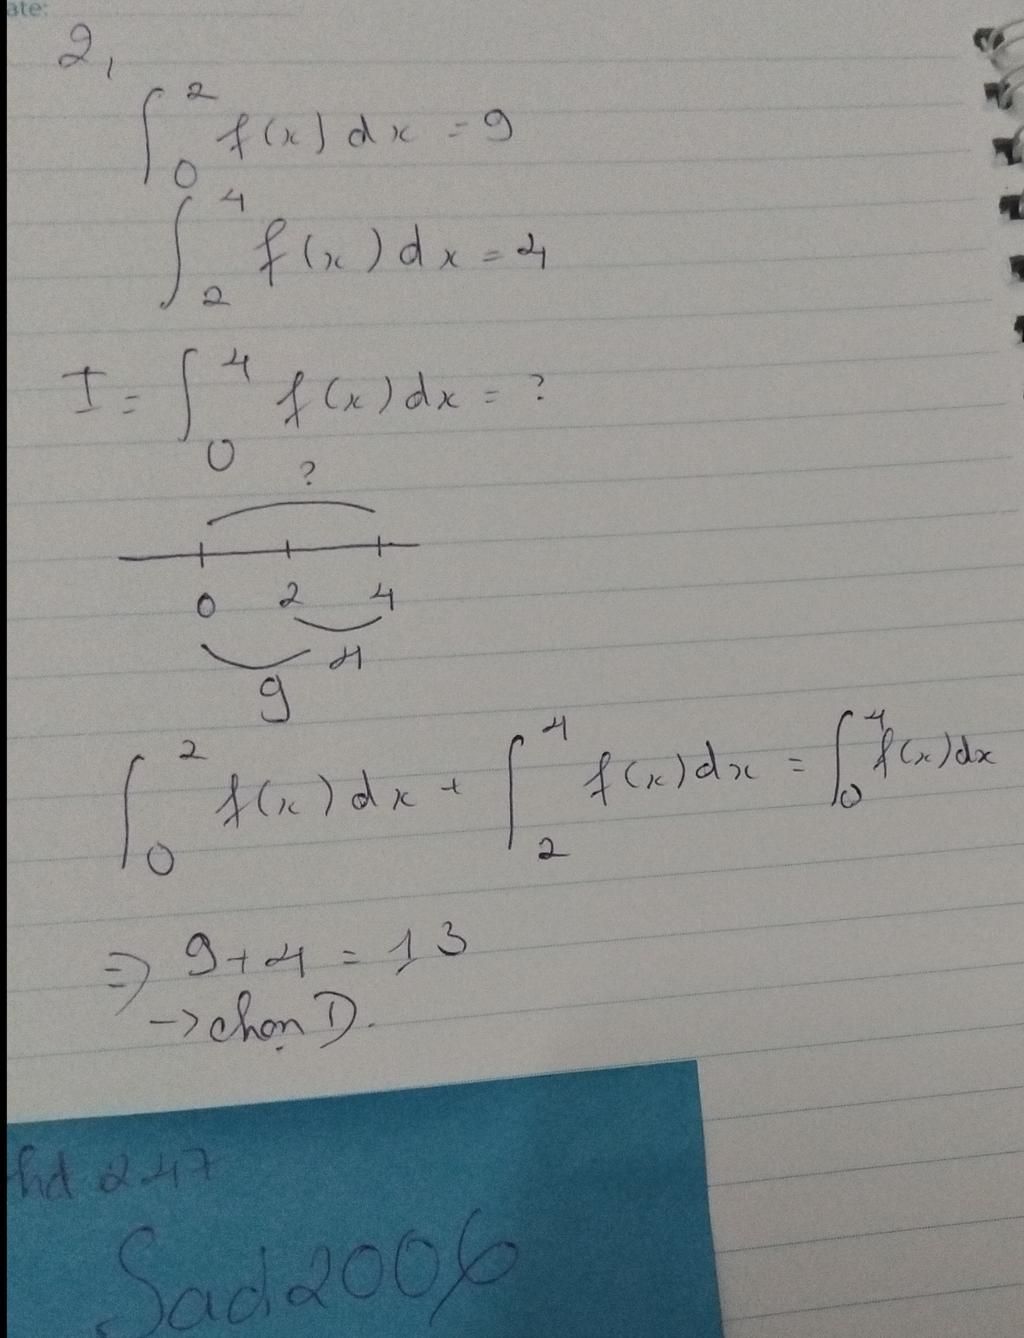 ate:
2,
∫₀² f(x) dx = 9
∫₂⁴ f(x) dx = 4
I = ∫₀⁴ f(x) dx = ?
?
0 2 4
4
9
∫₀² f(x) dx + ∫₂⁴ f(x) dx = ∫₀⁴ f(x) dx
=> 9 + 4 = 13
-> chọn D.
hd 247
Sad2006